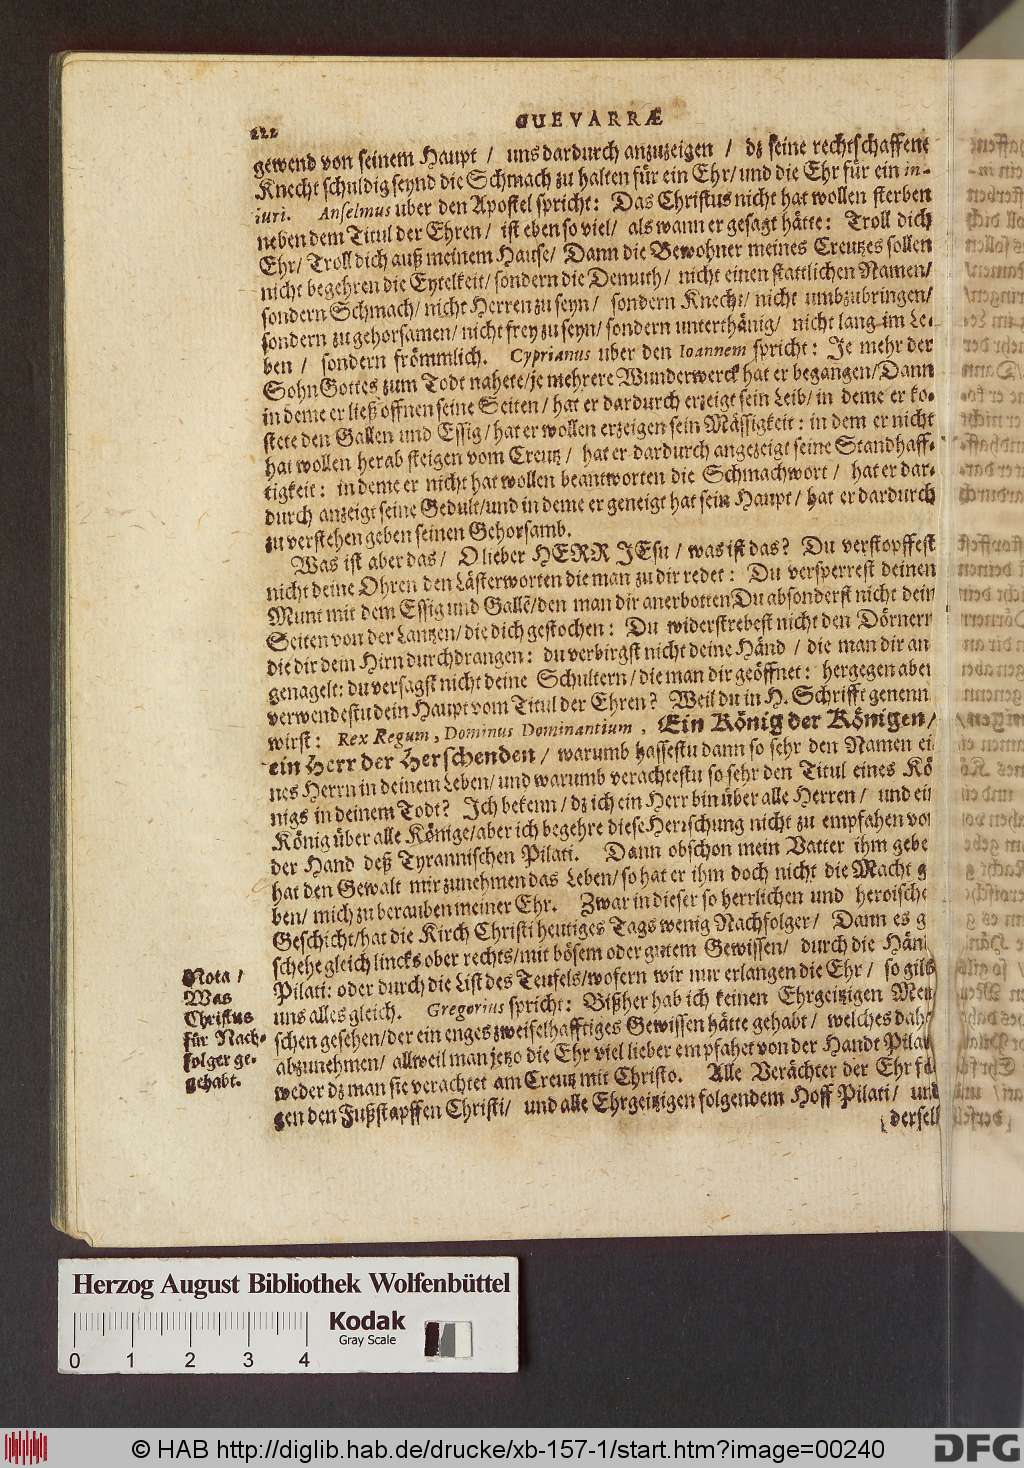 222
GUEVARRÆ
gewend von seinem Haupt / uns dardurch anzuzeigen / dz seine rechtschaffene
Knecht schuldig seynd die Schmach zu halten für ein Ehr/ und die Ehr für ein in-
iuri. Anselmus uber den Apostel spricht: Das Christus nicht hat wollen sterben
neben dem Titul der Ehren / ist eben so viel / als wann er gesagt hätte: Troll dich
Ehr / Troll dich auß meinem Hause / Dann die Bewohner meines Creutzes sollen
nicht begehren die Eytelkeit / sondern die Demuth / nicht einen stattlichen Namen/
sondern Schmach / nicht Herren zu seyn / sondern Knecht / nicht umbzubringen/
sondern zu gehorsamen / nicht frey zu seyn/ sondern unterthänig / nicht lang im Le-
ben / sondern frömmlich. Cyprianus uber den Ioannem spricht: Je mehr der
Sohn Gottes zum Todt nahete/ je mehrere Wunderwerck hat er begangen/ Dann
in deme er ließ öffnen seine Seiten / hat er dardurch erzeigt sein Leib/ in deme er ko-
stete den Gallen und Essig / hat er wollen erzeigen sein Mässigkeit: in dem er nicht
hat wollen herab steigen vom Creutz / hat er dardurch angezeigt seine Standhaff-
tigkeit: in deme er nicht hat wollen beantworten die Schmachwort / hat er dar-
durch anzeigt seine Gedult/ und in deme er geneigt hat sein Haupt / hat er dardurch
zu verstehen geben seinen Gehorsamb.
Was ist aber das / O lieber HERR JEsu / was ist das? Du verstopffest
nicht deine Ohren den Lästerworten die man zu dir redet: Du versperrest deinen
Munt mit dem Essig und Gallē/ den man dir anerbotten Du absonderst nicht dein
Seiten von der Lantzen / die dich gestochen: Du widerstrebest nicht den Dörnern
die dir dein Hirn durchdrangen: du verbirgst nicht deine Händ / die man dir an
genagelt: du versagst nicht deine Schultern / die man dir geöffnet: hergegen aber
verwendestu dein Haupt vom Titul der Ehren? Weil du in H. Schrifft genenn
wirst: Rex Regum, Dominus Dominantium, Ein König der Königen/
ein Herr der Herschenden / warumb hassestu dann so sehr den Namen ei
nes Herrn in deinem Leben / und warumb verachtestu so sehr den Titul eines Kö
nigs in deinem Todt? Ich bekenn / dz ich ein Herr bin über alle Herren / und ein
König über alle Könige/ aber ich begehre diese Herrschung nicht zu empfahen vo
der Hand deß Tyrannischen Pilati. Dann obschon mein Vatter ihm gebe
hat den Gewalt mir zunehmen das Leben/ so hat er ihm doch nicht die Macht g
ben / mich zu berauben meiner Ehr. Zwar in dieser so herrlichen und heroische
Geschicht/ hat die Kirch Christi heutiges Tags wenig Nachfolger / Dann es g
schehe gleich lincks ober rechts / mit bösem oder gutem Gewissen / durch die Hän
Pilati: oder durch die List des Teufels/ wofern wir nur erlangen die Ehr / so gilt
uns alles gleich. Gregorius spricht: Bißher hab ich keinen Ehrgeitzigen Men
schen gesehen / der ein enges zweifelhafftiges Gewissen hätte gehabt / welches dah
abzunehmen / allweil man jetzo die Ehr viel lieber empfahet von der Handt Pilat
weder dz man sie verachtet am Creutz mit Christo. Alle Verächter der Ehr fol
gen den Fußstapffen Christi / und alle Ehrgeitzigen folgen dem Hoff Pilati / und
dersell
Nota /
Was
Christus
für Nach-
folger ge-
gehabt.
Herzog August Bibliothek Wolfenbüttel
Kodak
Gray Scale
0 1 2 3 4
© HAB http://diglib.hab.de/drucke/xb-157-1/start.htm?image=00240
DFG